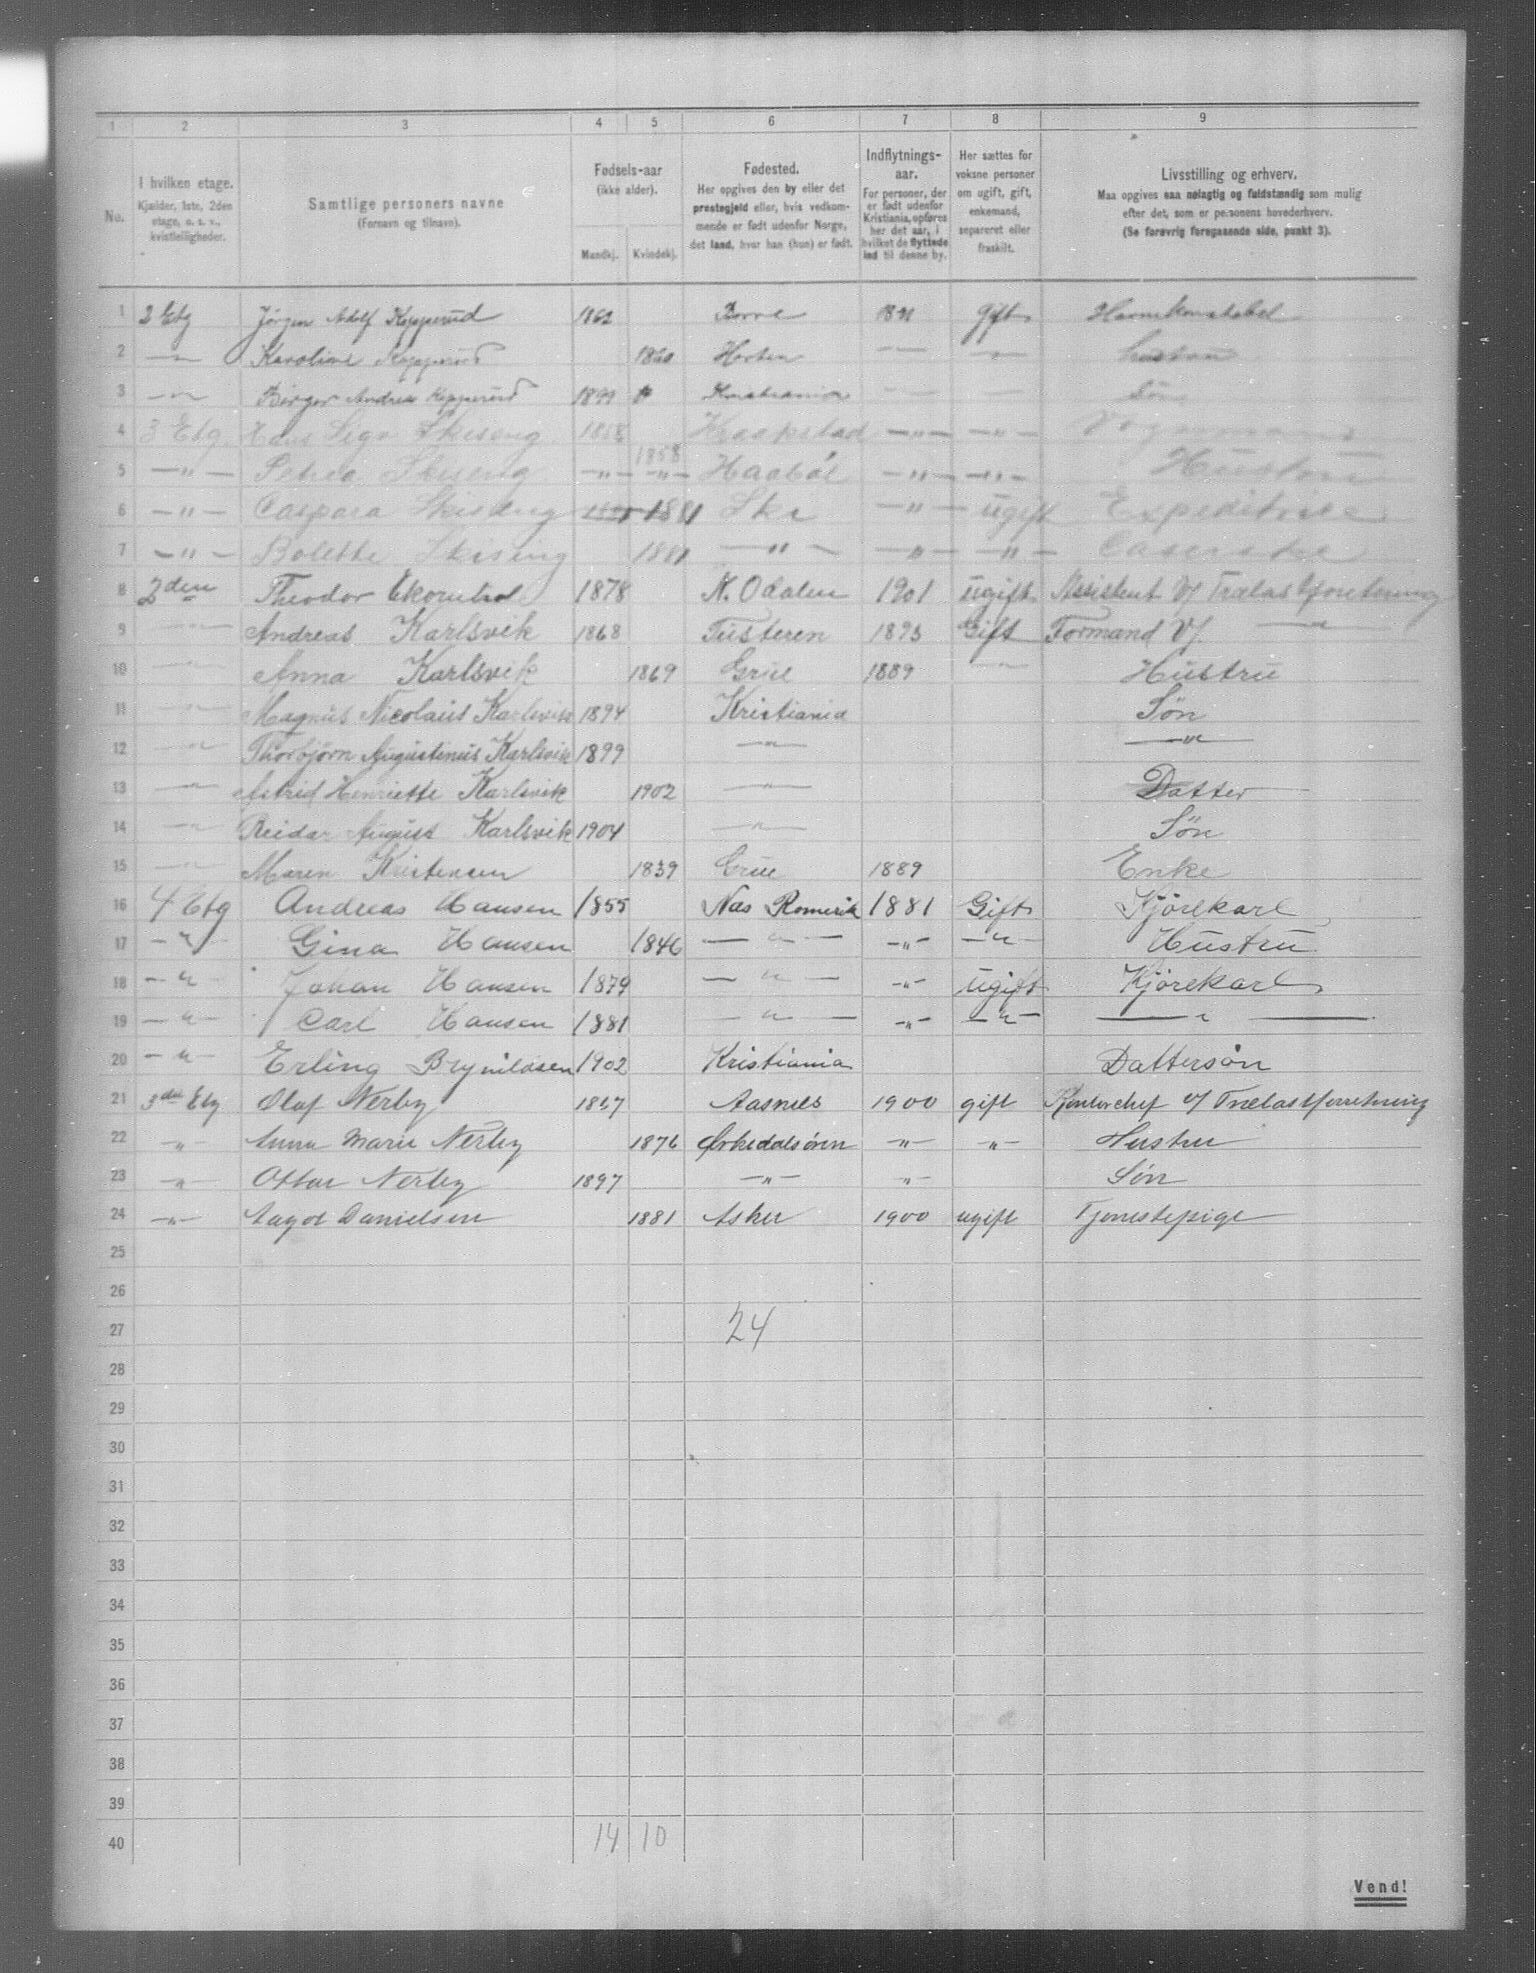 1 2 3 4 5 6 7 8 9
No.
I hvilken etage.
Kjælder, 1ste, 2den
etage, o. s. v.,
kvistleiligheder.
Samtlige personers navne
(Fornavn og tilnavn).
Fødsels-aar
(ikke alder).
Mandkj. Kvindekj.
Fødested.
Her opgives den by eller det
prestegjeld eller, hvis vedkom-
mende er født udenfor Norge,
det land, hvor han (hun) er født.
Indflytnings-
aar.
For personer, der
er født udenfor
Kristiania, opføres
her det aar, i
hvilket de flyttede
ind til denne by.
Her sættes for
voksne personer
om ugift, gift,
enkemand,
separeret eller
fraskilt.
Livsstilling og erhverv.
Maa opgives saa nøiagtig og fuldstændig som mulig
efter det, som er personens hovederhverv.
(Se forøvrig foregaaende side, punkt 3).
1 2 Etg Jørgen Adolf Kopperud 1862 Borre gift Havnekonstabel
2 —"— Karoline Kopperud 1860 Horten —"— —"— Hustru
3 —"— Birger Andreas Kopperud 1899 Kristiania Søn
4 3 Etg. Skiseng 1858 Kraakstad —"— —"— Vognmand
5 —"— Petrea Skiseng —"— 1858 —"— Haabøl —"— —"— Hustru
6 —"— Caspara Skiseng 1881 Ski —"— ugift Expeditrice
7 —"— Bolette Skiseng 1881 —"— —"— —"— Caserske
8 2den Theodor 1878 N. Odalen 1901 ugift Assistent v/ Trælastforretning
9 —"— Andreas Karlsvik 1868 Tusteren 1893 Gift Formand v/. —"—
10 —"— Anna Karlsvik 1869 Grue 1889 —"— Hustru
11 —"— Magnus Nicolaus Karlsvik 1894 Kristiania Søn
12 —"— Thorbjørn Augustinus Karlsvik 1899 —"— —"—
13 —"— Astrid Henriette Karlsvik 1902 —"— Datter
14 —"— Reidar August Karlsvik 1904 —"— Søn
15 —"— Maren Kristensen 1839 Grue 1889 Enke
16 4 Etg Andreas Hansen 1855 Næs Romerik 1881 Gift Kjørekarl
17 —"— Gina Hansen 1846 —"— —"— —"— Hustru
18 —"— Johan Hansen 1879 —"— —"— ugift Kjørekarl
19 —"— Carl Hansen 1881 —"— —"— —"— —"—
20 —"— Erling Brynildsen 1902 Kristiania Dattersøn
21 3die Etg Olaf Nerby 1867 Aasnes 1900 gift Kontorchef v/ Trælastforretning
22 —"— Anna Marie Nerby 1876 Orkedalsøren —"— —"— Hustru
23 —"— Ottar Nerby 1897 —"— —"— Søn
24 —"— Aagot Danielsen 1881 Asker 1900 ugift Tjenestepige
25
26
27 24
28
29
30
31
32
33
34
35
36
37
38
39
40 14 10
Vend!